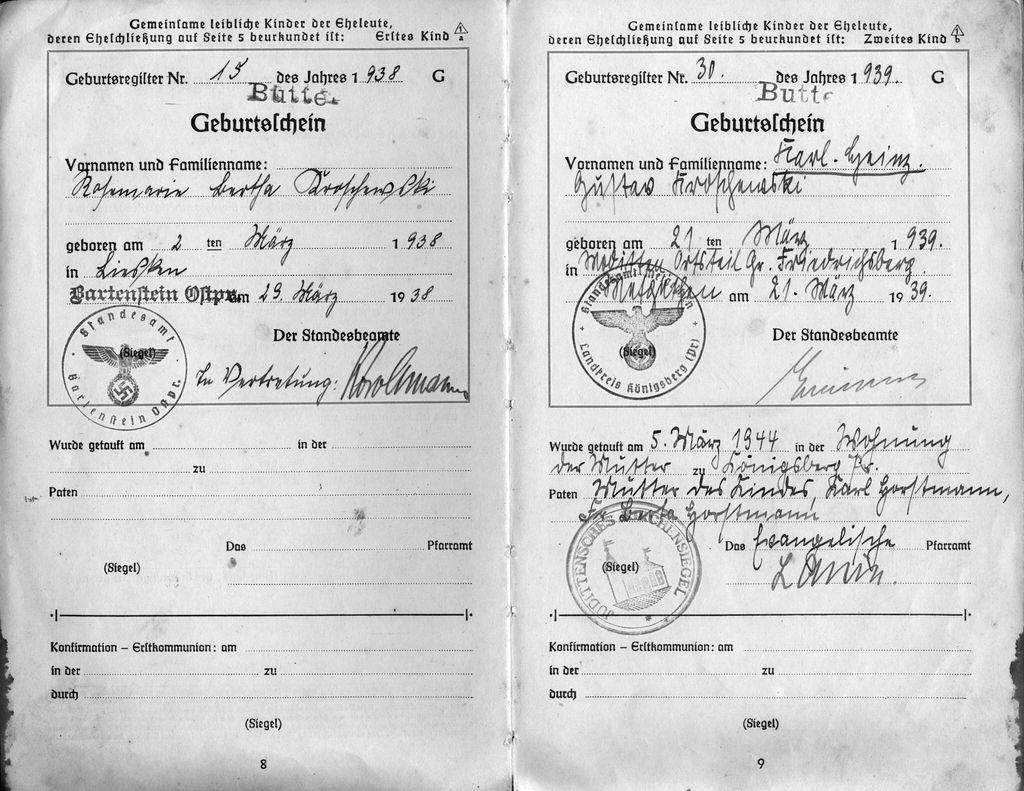 Gemeinsame leibliche Kinder der Eheleute,
deren Eheschließung auf Seite 5 beurkundet ist: Erstes Kind a
Geburtsregister Nr. 15 des Jahres 1938 G
Butte
Geburtsschein
Vornamen und Familienname:
Rosemarie Bertha Kroschewski
geboren am 2 ten März 1938
in Liesken
Bartenstein Ostpr. am 29. März 1938
Standesamt
Bartenstein Ostpr.
(Siegel)
Der Standesbeamte
In Vertretung:
Wurde getauft am in der
zu
Paten
Das Pfarramt
(Siegel)
Konfirmation – Erstkommunion: am
in der zu
durch
(Siegel)
8
Gemeinsame leibliche Kinder der Eheleute,
deren Eheschließung auf Seite 5 beurkundet ist: Zweites Kind b
Geburtsregister Nr. 30. des Jahres 1939. G
Butte
Geburtsschein
Vornamen und Familienname: Karl-Heinz
Gustav Kroschewski
geboren am 21 ten März 1939.
in Moditten Ortsteil Gr. Friedrichsberg.
Metgethen am 21. März 1939.
Standesamt Metgethen
Landkreis Königsberg (Pr)
(Siegel)
Der Standesbeamte
Wurde getauft am 5. März 1944 in der Wohnung
der Mutter zu Königsberg Pr.
Paten Mutter des Kindes, Karl Horstmann,
Horstmann
JUDITTENSCHES KIRCHENSIEGEL
Das Evangelische Pfarramt
(Siegel)
Konfirmation – Erstkommunion: am
in der zu
durch
(Siegel)
9